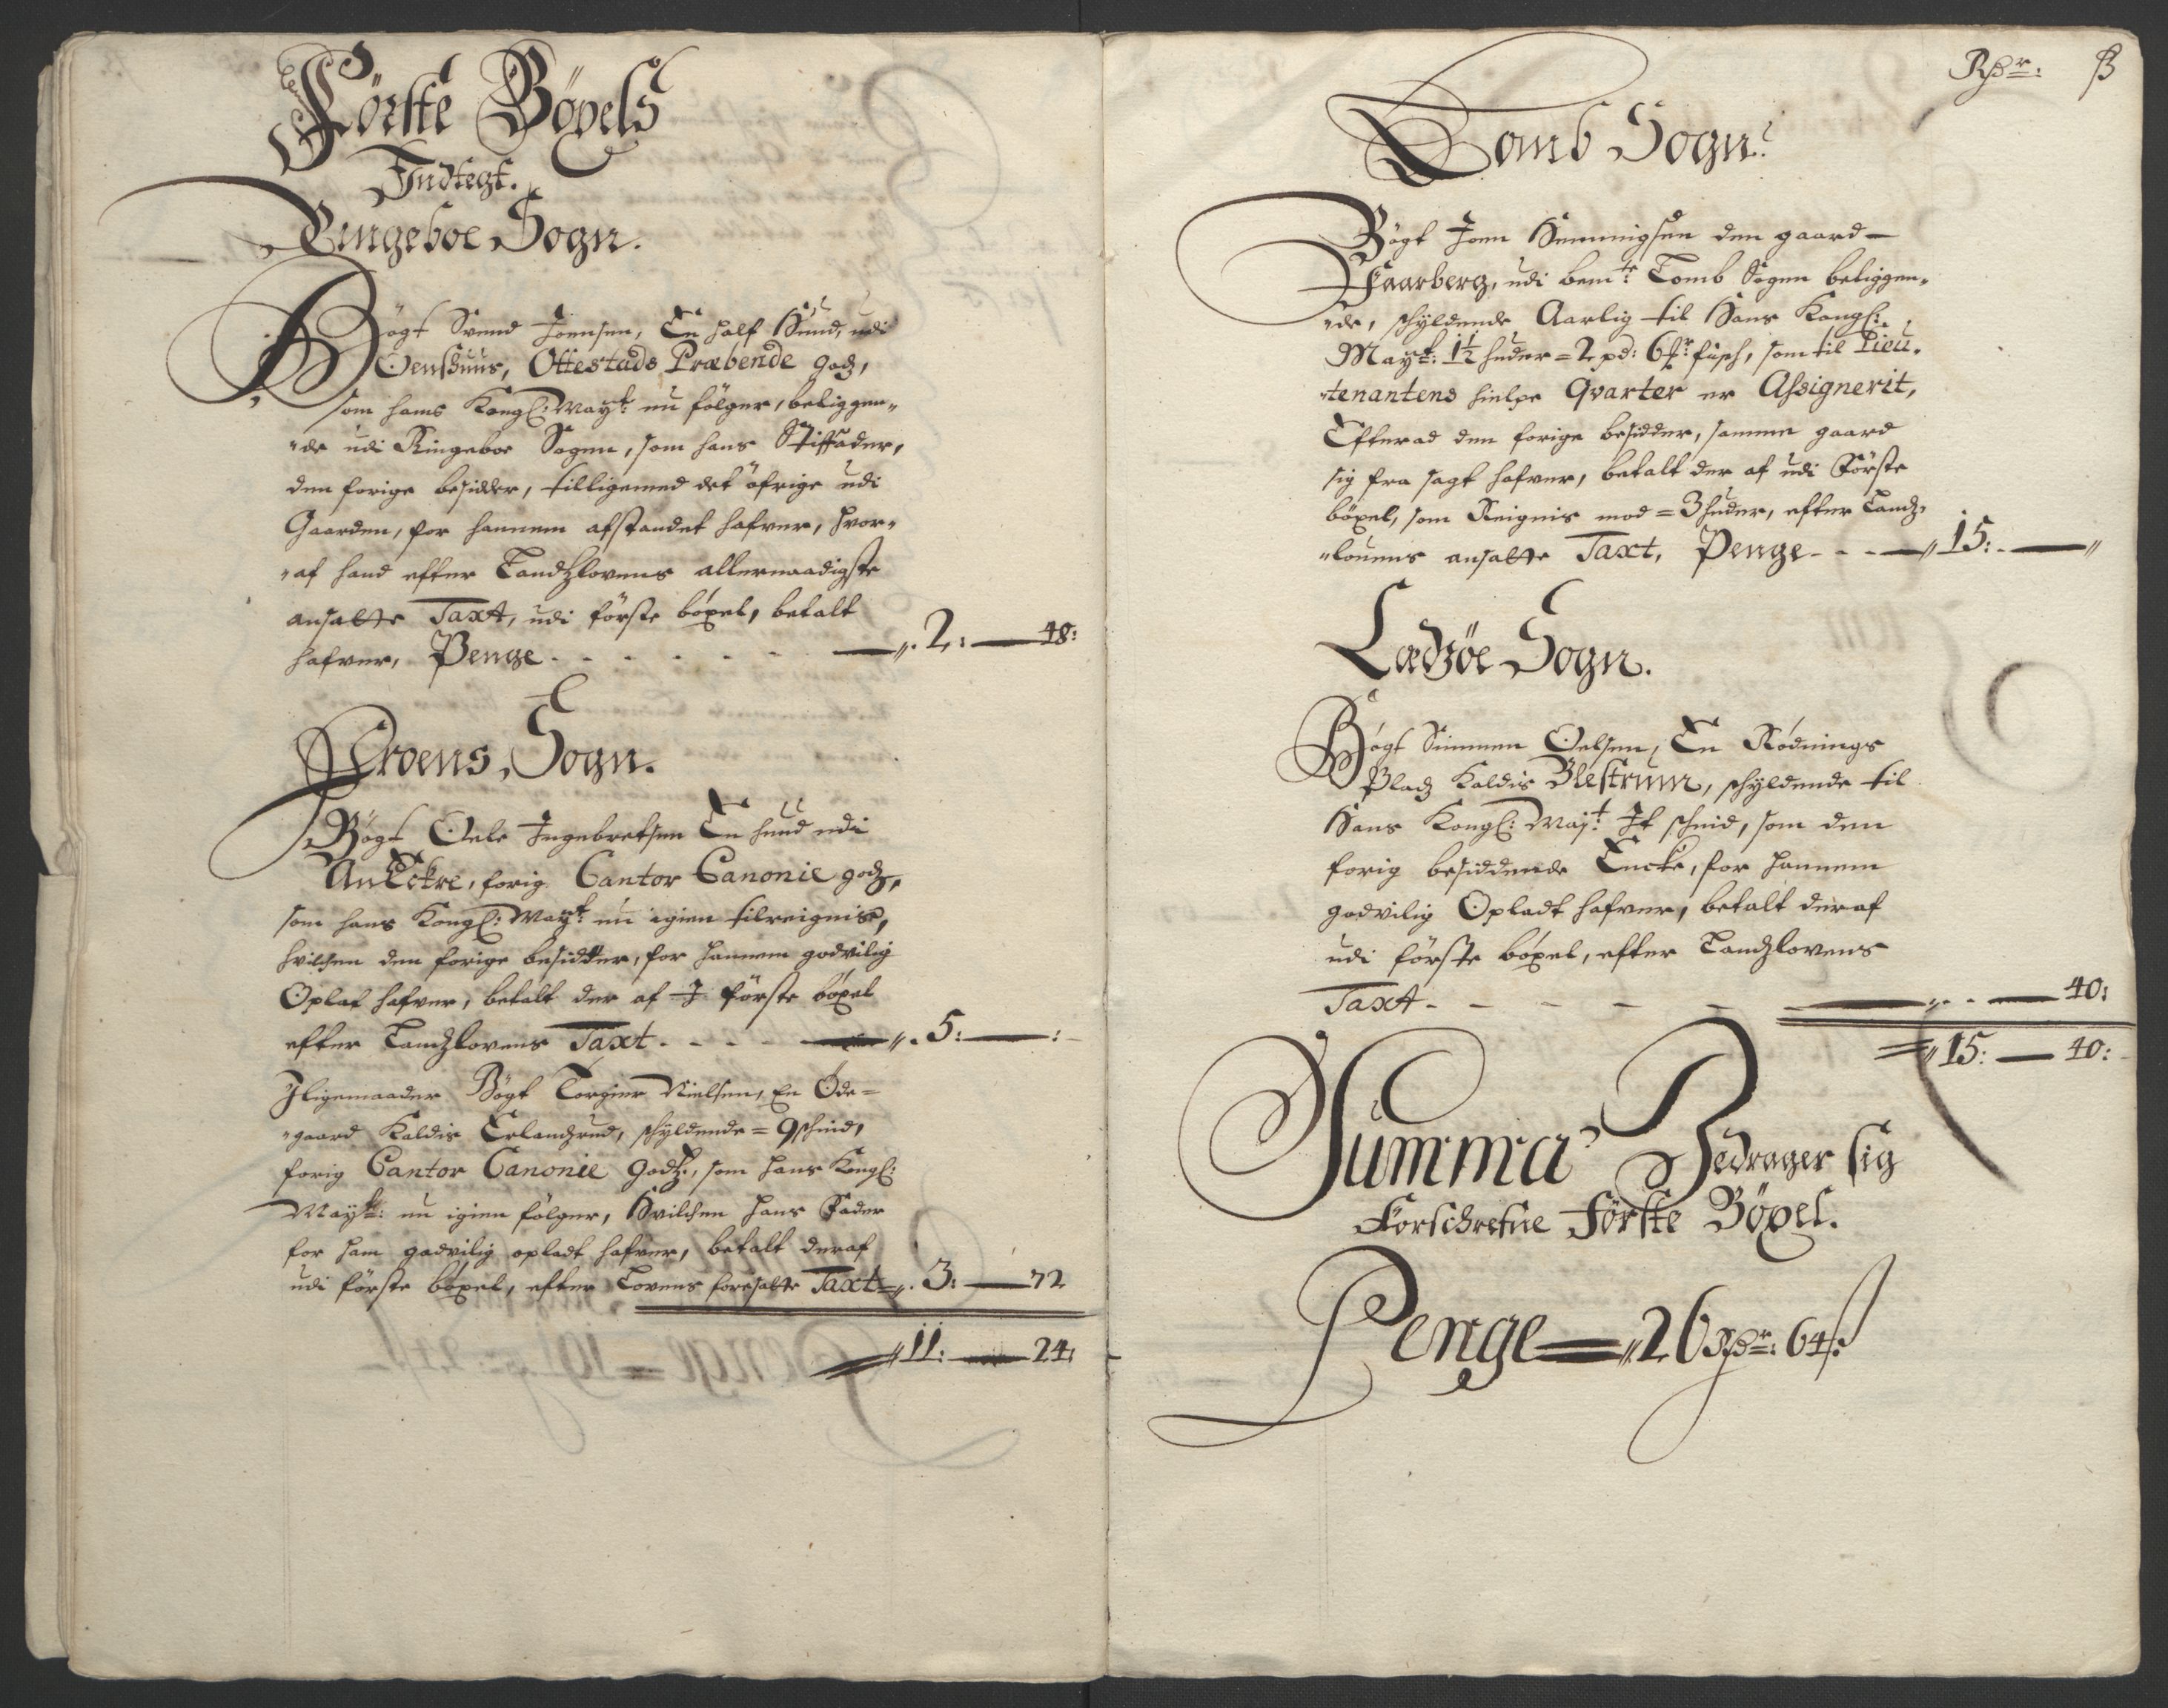 Förste Böxels
Indtegt.
Ringeboe Sogn.
Bögt Svend Joensen, En half Hund, udi
Oenshuus, Ottestads Præbende godz,
som hans Kongl: Mayt: nu fölger, beliggen„
„de udi Ringeboe Sogen, som hans Stiffader,
den forige besidder, tilligemed det öfrige udi
Gaarden, for hannem afstandet hafver, hvor„
„af hand efter Landzlovens allernaadigste
ansatte Taxt, udi förste böxel, betalt
hafver, Penge - - - - - - „. 2: — 48:
Froens Sogn.
Bögt Oele Ingebretsen En hund udi
forig Cantor Canonie godz,
som hans Kongl: Mayt: nu igien tilreignis,
hvilchen den forige besidder, for hannem godvilig
Oplat hafver, betalt der af I förste böxel
efter Landzlovens Taxt - - - - „. 5: — :
Iligemaader Bögt Torgier Nielsen, En Öde=
„gaard Kaldis Erlandzrud, schyldende = 9 schind,
forig Cantor Canonie Godtz, som hans Kongl:
Mayt: nu igien fölger, Hvilchen hans Fader
for ham godvilig opladt hafver, betalt deraf
udi förste böxel, efter Lovens foresatte Taxt = „. 3: — 72
„ 11: — 24:
Rdr: ß
Tomb Sogn:
Bögt Joen Hemmingsen den gaard
Faarberg, udi bemte: Tomb Sogen beliggen„
„de, schyldende Aarlig til Hans Kongl:
Mayt: 1½ huder = 2 pd: 6 fisch, som til Lieu„
„tenantens hielpe Qvarter er Assignerit,
Efterad den forige besidder, samme gaard
sig fra sagt hafver, betalt der af udi Förste
böxel, som Reignis mod = 3 huder, efter Landz„
„louens ansatte Taxt, Penge - - - „ 15: — „
Ladzöe Sogn.
Bögt Simmen Oelsen, En Rödnings
Pladz Kaldis Blestrum, schyldende til
Hans Kongl: Majt: It schind, som den
forig besiddende Encke, for hannem
godvilig Opladt hafver, betalt deraf
udi förste böxel, efter Landzlovens
Taxt - - - - - „. - — 40:
„ 15: — 40:
Summa Bedrager sig
Forschrefne Förste Böxel.
Penge = „ 26 Rdr: 64 ß